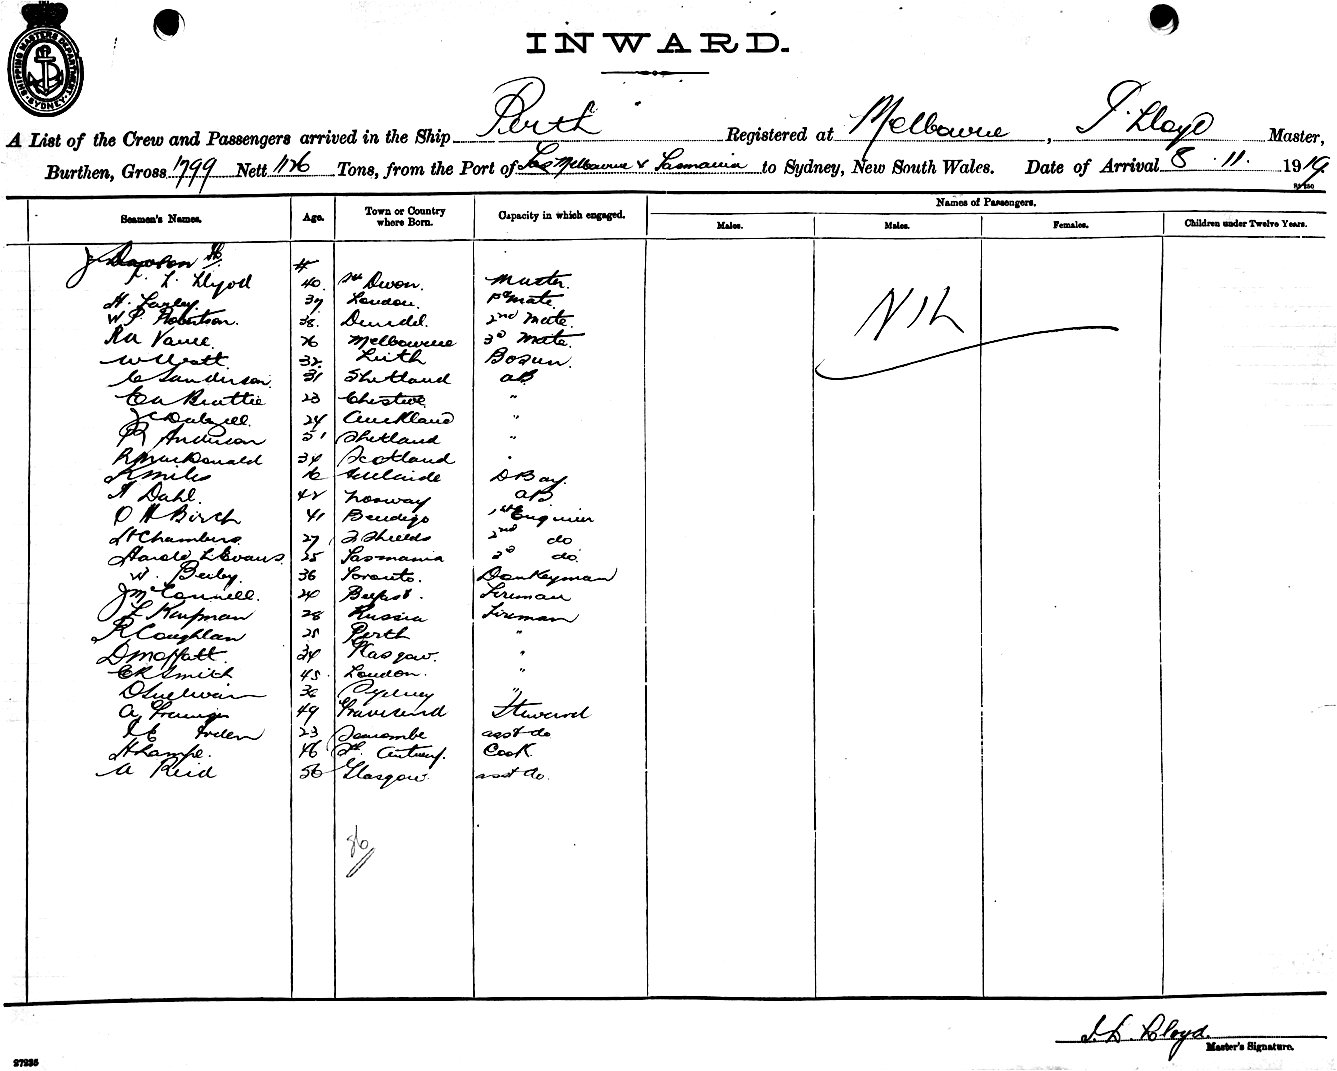 SHIPPING MASTERS DEPARTMENT SYDNEY
INWARD.
A List of the Crew and Passengers arrived in the Ship Perth Registered at Melbourne, Lloyd Master,
Burthen, Gross 1799 Nett 1126 Tons, from the Port of Melbourne & Tasmania to Sydney, New South Wales. Date of Arrival 8.11.1919
Seamen's Names. Age. Town or Country where Born. Capacity in which engaged. Names of Passengers.
Males. Males. Females. Children under Twelve Years.
J Dawson
L. Llyod 40 Devon. Master.
H. Farley 37 London. 1st Mate
W P. Robertson. 38. Dundel. 2nd Mate.
Vance 26 Melbourne 3d Mate.
W Watt. 32 Leith Bosun.
C Sanderson 31 Shetland AB
Beattie 23 "
J C Dalziell. 24 Auckland "
R Anderson 31 Shetland "
R MacDonald 34 Scotland "
R Miles 16 Adelaide D Boy.
A Dahl. 42 Norway AB
O H Birch 41 Bendigo 1st Engineer
H Chambers 27 S Shields 2nd do
Harold L Evans 25 Tasmania 3d do.
W. Bexley. 36 Toronto. Donkeyman
J McConnell. 20 Belfast. Fireman
L Kaufman 28 Russia Fireman
R Coughlan 25 Perth "
D Moffatt. 34 Glasgow. "
C R Smith 45 London. "
O Sullivan 36 Sydney "
A Grainger 49 Gravesend Steward
23 Seacombe asst do
H Lampe. 46 Antwerp. Cook.
A Reid 56 Glasgow. asst do.
Nil
26
Lloyd.
Master's Signature.
27235